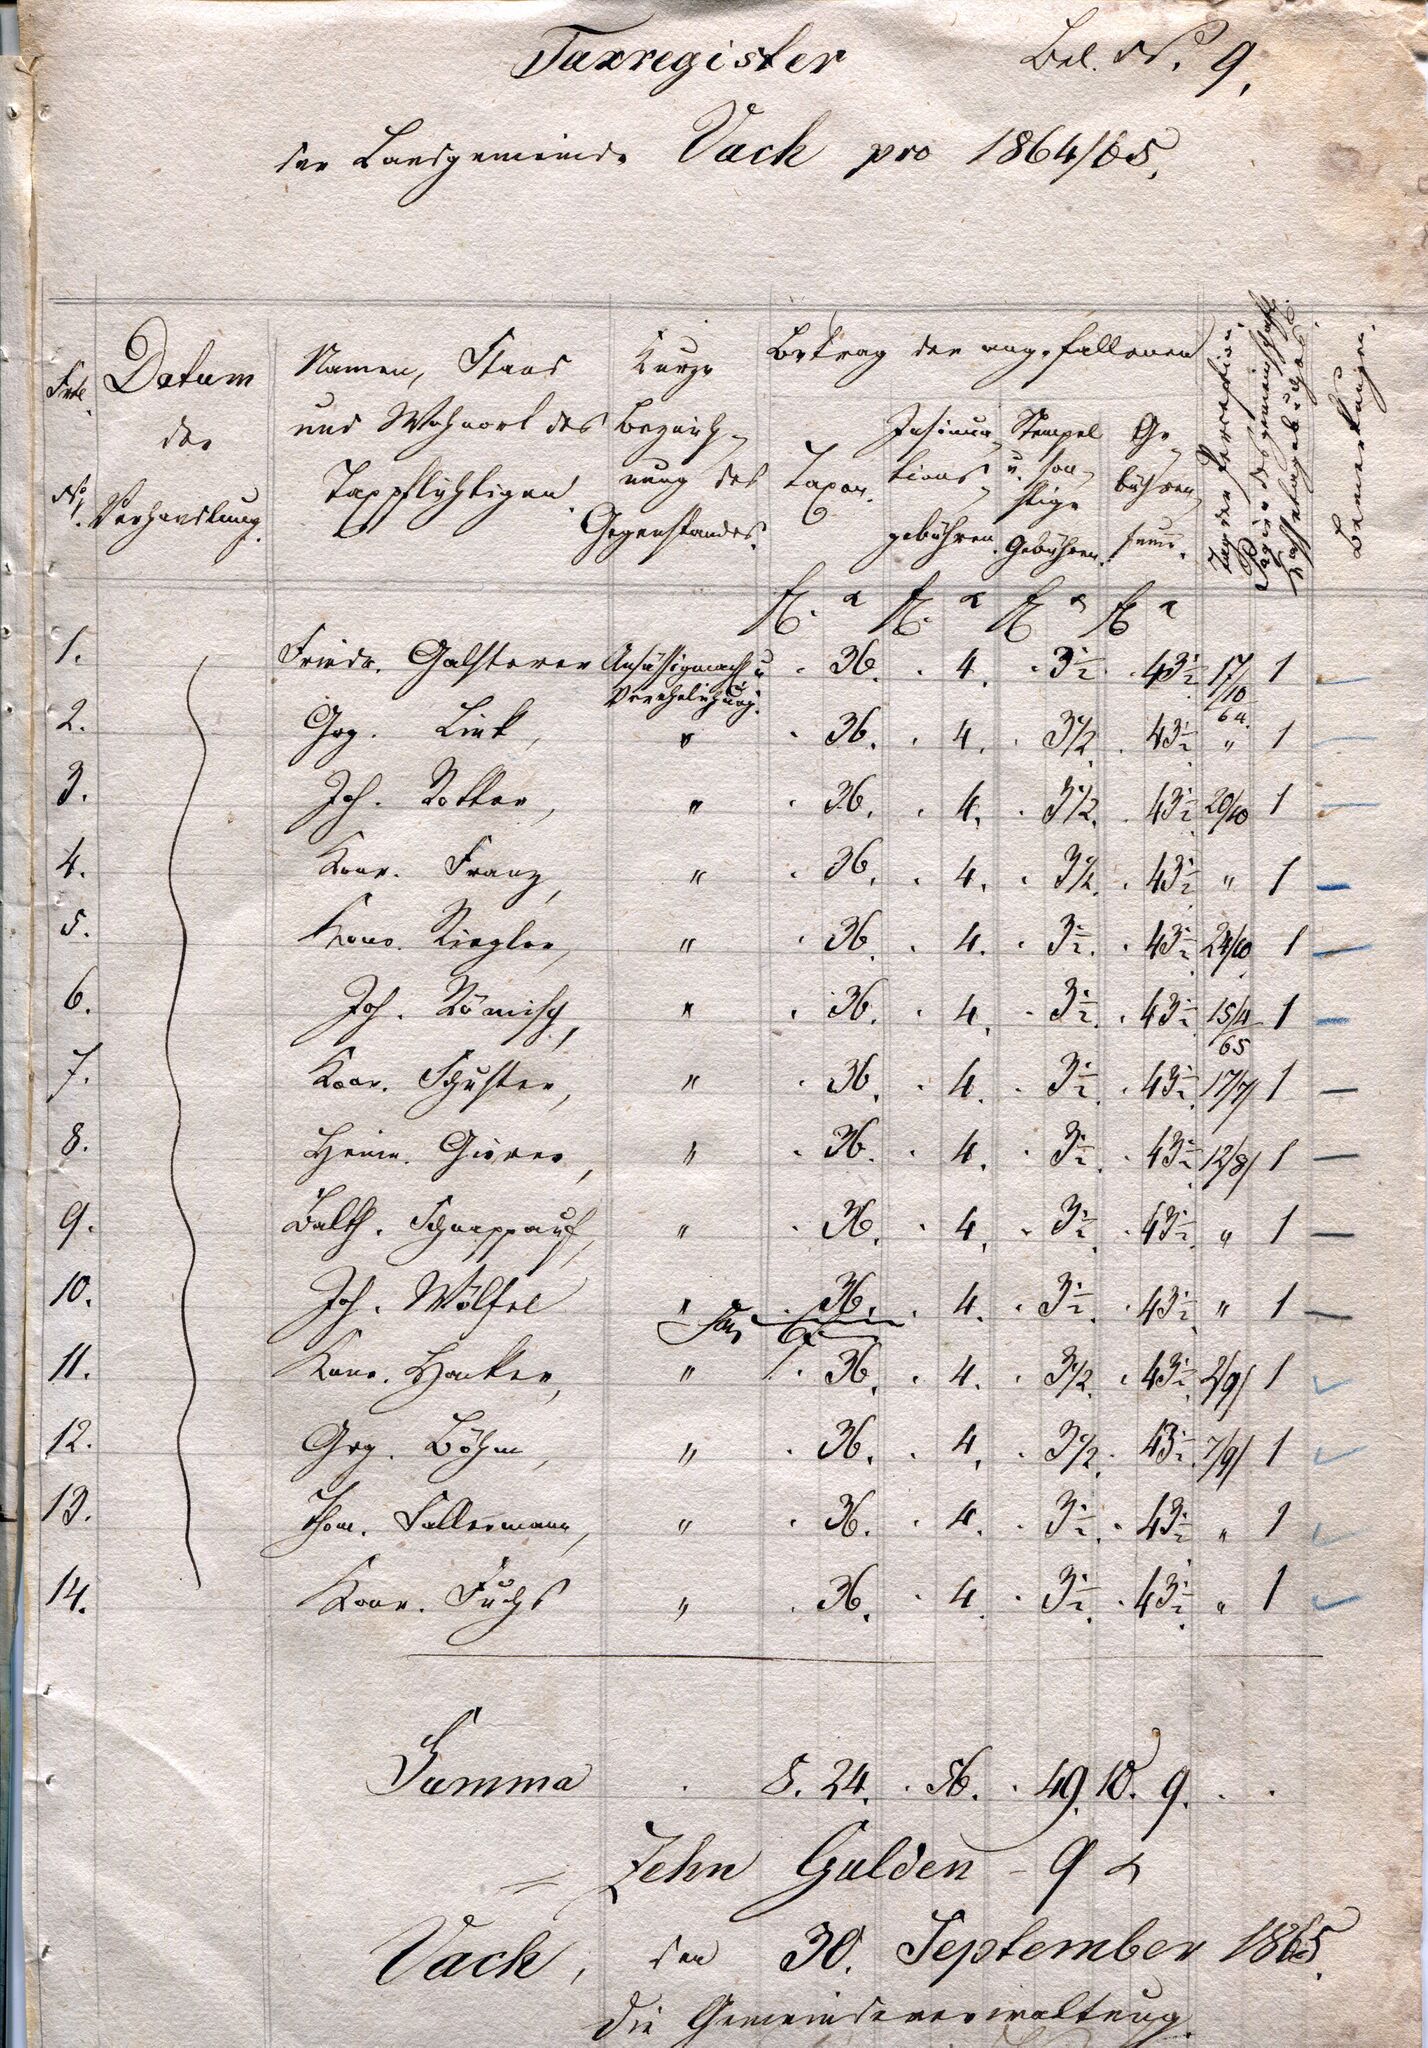 Taxregister Bel. No. 9.
der Landgemeinde Vach pro 1864/65.
Frtl. No. Datum der Verhandlung. Namen, Stand und Wohnort des Taxpflichtigen Kurze Bezeichnung des Gegenstandes. Betrag der angefallenen Taxen. Insinuationsgebühren. Stempel u. sonstige Gebühren. Gebührensumme. Tag der Perception. Bemerkungen.
fl. x fl. x fl. x fl. x
1. Friedr. Galsterer Ansässigmach. u. Verehelichung. . 36. . 4. . 3½ . 43½ 17/10 64. 1
2. Grg. Link, " . 36. . 4. . 3½. . 43½ " 1
3. Joh. Rotter, " . 36. . 4. . 3½. . 43½ 20/10 1
4. Konr. Franz, " . 36. . 4. . 3½. . 43½ " 1
5. Konr. Riegler, " . 36. . 4. . 3½. . 43½ 24/10 1
6. Joh. Römisch, " . 36. . 4. . 3½. . 43½ 15/4 65 1
7. Konr. Schuster, " . 36. . 4. . 3½. . 43½ 17/7 1
8. Heinr. Gierer, " . 36. . 4. . 3½. . 43½ 12/8 1
9. Balth. Schnappauf, " . 36. . 4. . 3½. . 43½ " 1
10. Joh. Wölfel " . 36. . 4. . 3½. . 43½ " 1
11. Konr. Hacker, " . 36. . 4. . 3½. . 43½ 2/9 1
12. Grg. Böhm, " . 36. . 4. . 3½. . 43½ 7/9 1
13. Thom. Fallermann, " . 36. . 4. . 3½. . 43½ " 1
14. Konr. Fuchs " . 36. . 4. . 3½. . 43½ " 1
Summa . 8. 24. . 56. . 49. 10. 9. . .
= Zehn Gulden - 9 x
Vach, den 30. September 1865.
Die Gemeindeverwaltung.